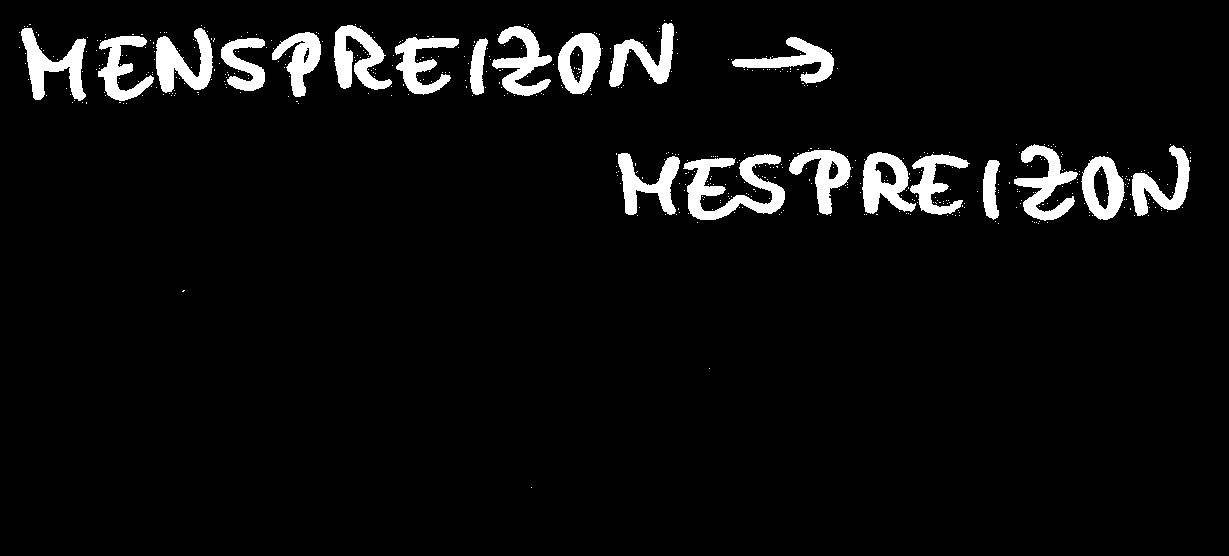 MENSPREIZON →
MESPREIZON